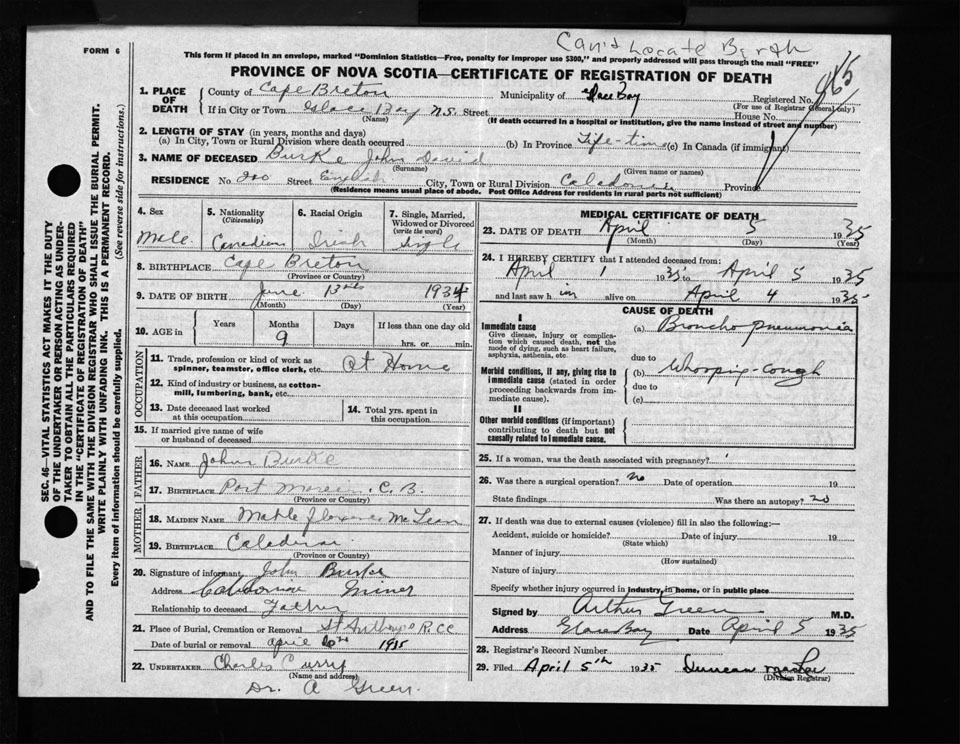 FORM 6
Can't Locate Birth
This form if placed in an envelope, marked "Dominion Statistics—Free, penalty for improper use $300," and properly addressed will pass through the mail "FREE"
PROVINCE OF NOVA SCOTIA—CERTIFICATE OF REGISTRATION OF DEATH
1. PLACE OF DEATH
County of Cape Breton Municipality of Glace Bay Registered No. 965
(For use of Registrar General only)
If in City or Town Glace Bay N.S. Street House No.
(Name) (If death occurred in a hospital or institution, give the name instead of street and number)
2. LENGTH OF STAY (in years, months and days)
(a) In City, Town or Rural Division where death occurred (b) In Province Life-time (c) In Canada (if immigrant)
3. NAME OF DECEASED Burke John David
(Surname) (Given name or names)
RESIDENCE No 200 Street English City, Town or Rural Division Caledonia Province
(Residence means usual place of abode. Post Office Address for residents in rural parts not sufficient)
4. Sex
Male
5. Nationality
(Citizenship)
Canadian
6. Racial Origin
Irish
7. Single, Married, Widowed or Divorced
(write the word)
Single
8. BIRTHPLACE Cape Breton
(Province or Country)
9. DATE OF BIRTH June 13 1934
(Month) (Day) (Year)
10. AGE in
Years Months Days If less than one day old
9 hrs. or min.
OCCUPATION
11. Trade, profession or kind of work as spinner, teamster, office clerk, etc. At Home
12. Kind of industry or business, as cotton-mill, lumbering, bank, etc.
13. Date deceased last worked at this occupation
14. Total yrs. spent in this occupation
15. If married give name of wife or husband of deceased
FATHER
16. NAME John Burke
17. BIRTHPLACE Port Morien C.B.
(Province or Country)
MOTHER
18. MAIDEN NAME Mable Florence McLean
19. BIRTHPLACE Caledonia
(Province or Country)
20. Signature of informant John Burke
Address Caledonia Miner
Relationship to deceased Father
21. Place of Burial, Cremation or Removal St Anthonys R.C.C
Date of burial or removal April 6 1935
22. UNDERTAKER Charles Curry
(Name and address)
Dr. A Green.
MEDICAL CERTIFICATE OF DEATH
23. DATE OF DEATH April 5 1935
(Month) (Day) (Year)
24. I HEREBY CERTIFY that I attended deceased from:
April 1 1935 to April 5 1935
and last saw h im alive on April 4 1935
CAUSE OF DEATH
I
Immediate cause
Give disease, injury or complication which caused death, not the mode of dying, such as heart failure, asphyxia, asthenia, etc.
(a) Broncho pneumonia
due to
Morbid conditions, if any, giving rise to immediate cause (stated in order proceeding backwards from immediate cause).
(b) Whooping-cough
due to
(c)
II
Other morbid conditions (if important) contributing to death but not causally related to immediate cause.
25. If a woman, was the death associated with pregnancy?
26. Was there a surgical operation? no Date of operation 19
State findings Was there an autopsy? no
27. If death was due to external causes (violence) fill in also the following:—
Accident, suicide or homicide? Date of injury 19
(State which)
Manner of injury
(How sustained)
Nature of injury
Specify whether injury occurred in industry, in home, or in public place
Signed by Arthur Green M.D.
Address Glace Bay Date April 5 1935
28. Registrar's Record Number
29. Filed April 5th 1935 Duncan
(Division Registrar)
SEC. 46—VITAL STATISTICS ACT MAKES IT THE DUTY
OF THE UNDERTAKER OR PERSON ACTING AS UNDER-
TAKER TO OBTAIN ALL THE PARTICULARS REQUIRED
IN THE "CERTIFICATE OF REGISTRATION OF DEATH"
AND TO FILE THE SAME WITH THE DIVISION REGISTRAR WHO SHALL ISSUE THE BURIAL PERMIT.
WRITE PLAINLY WITH UNFADING INK. THIS IS A PERMANENT RECORD.
Every item of information should be carefully supplied. (See reverse side for instructions.)